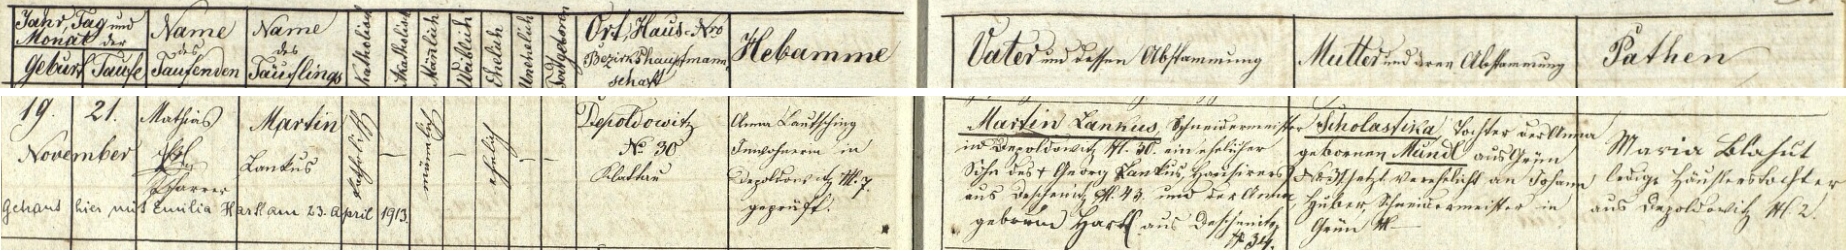 Jahr, Tag und
Monat der
Geburt Taufe
Name
des
Taufenden
Name
des
Täuflings
Katholisch
Akatholisch
Mänlich
Weiblich
Ehelich
Unehelich
Todtgeboren
Ort, Haus-Nro
Bezirkshauptmann-
schaft
Hebamme
Vater und dessen Abstammung
Mutter und deren Abstammung
Pathen
19. 21.
November
Mathias
Pfarrer
Martin
Lankus
katholisch
–
männlich
–
ehelich
–
–
Depoldowitz
No 30
Klattau
Anna Lautsching
Inwohnerin in
Depoldowitz N. 7.
geprüft.
Martin Lankus, Schneidermeister
in Depoldowitz N. 30. ein ehelicher
Sohn des † Georg Lankus, Hausirers
aus Deschenitz N. 43 und der Anna
geborene Hartl aus Deschenitz
N. 34.
Scholastika Tochter der Anna
gebornen Mundl aus Grün
jetzt verehelicht an Johann
Huber, Schneidermeister in
Grün N. –
Maria Blahut
ledige Häuslerstochter
aus Depoldowitz N 2.
Getraut hier mit Emilia Hartl am 23. April 1913.